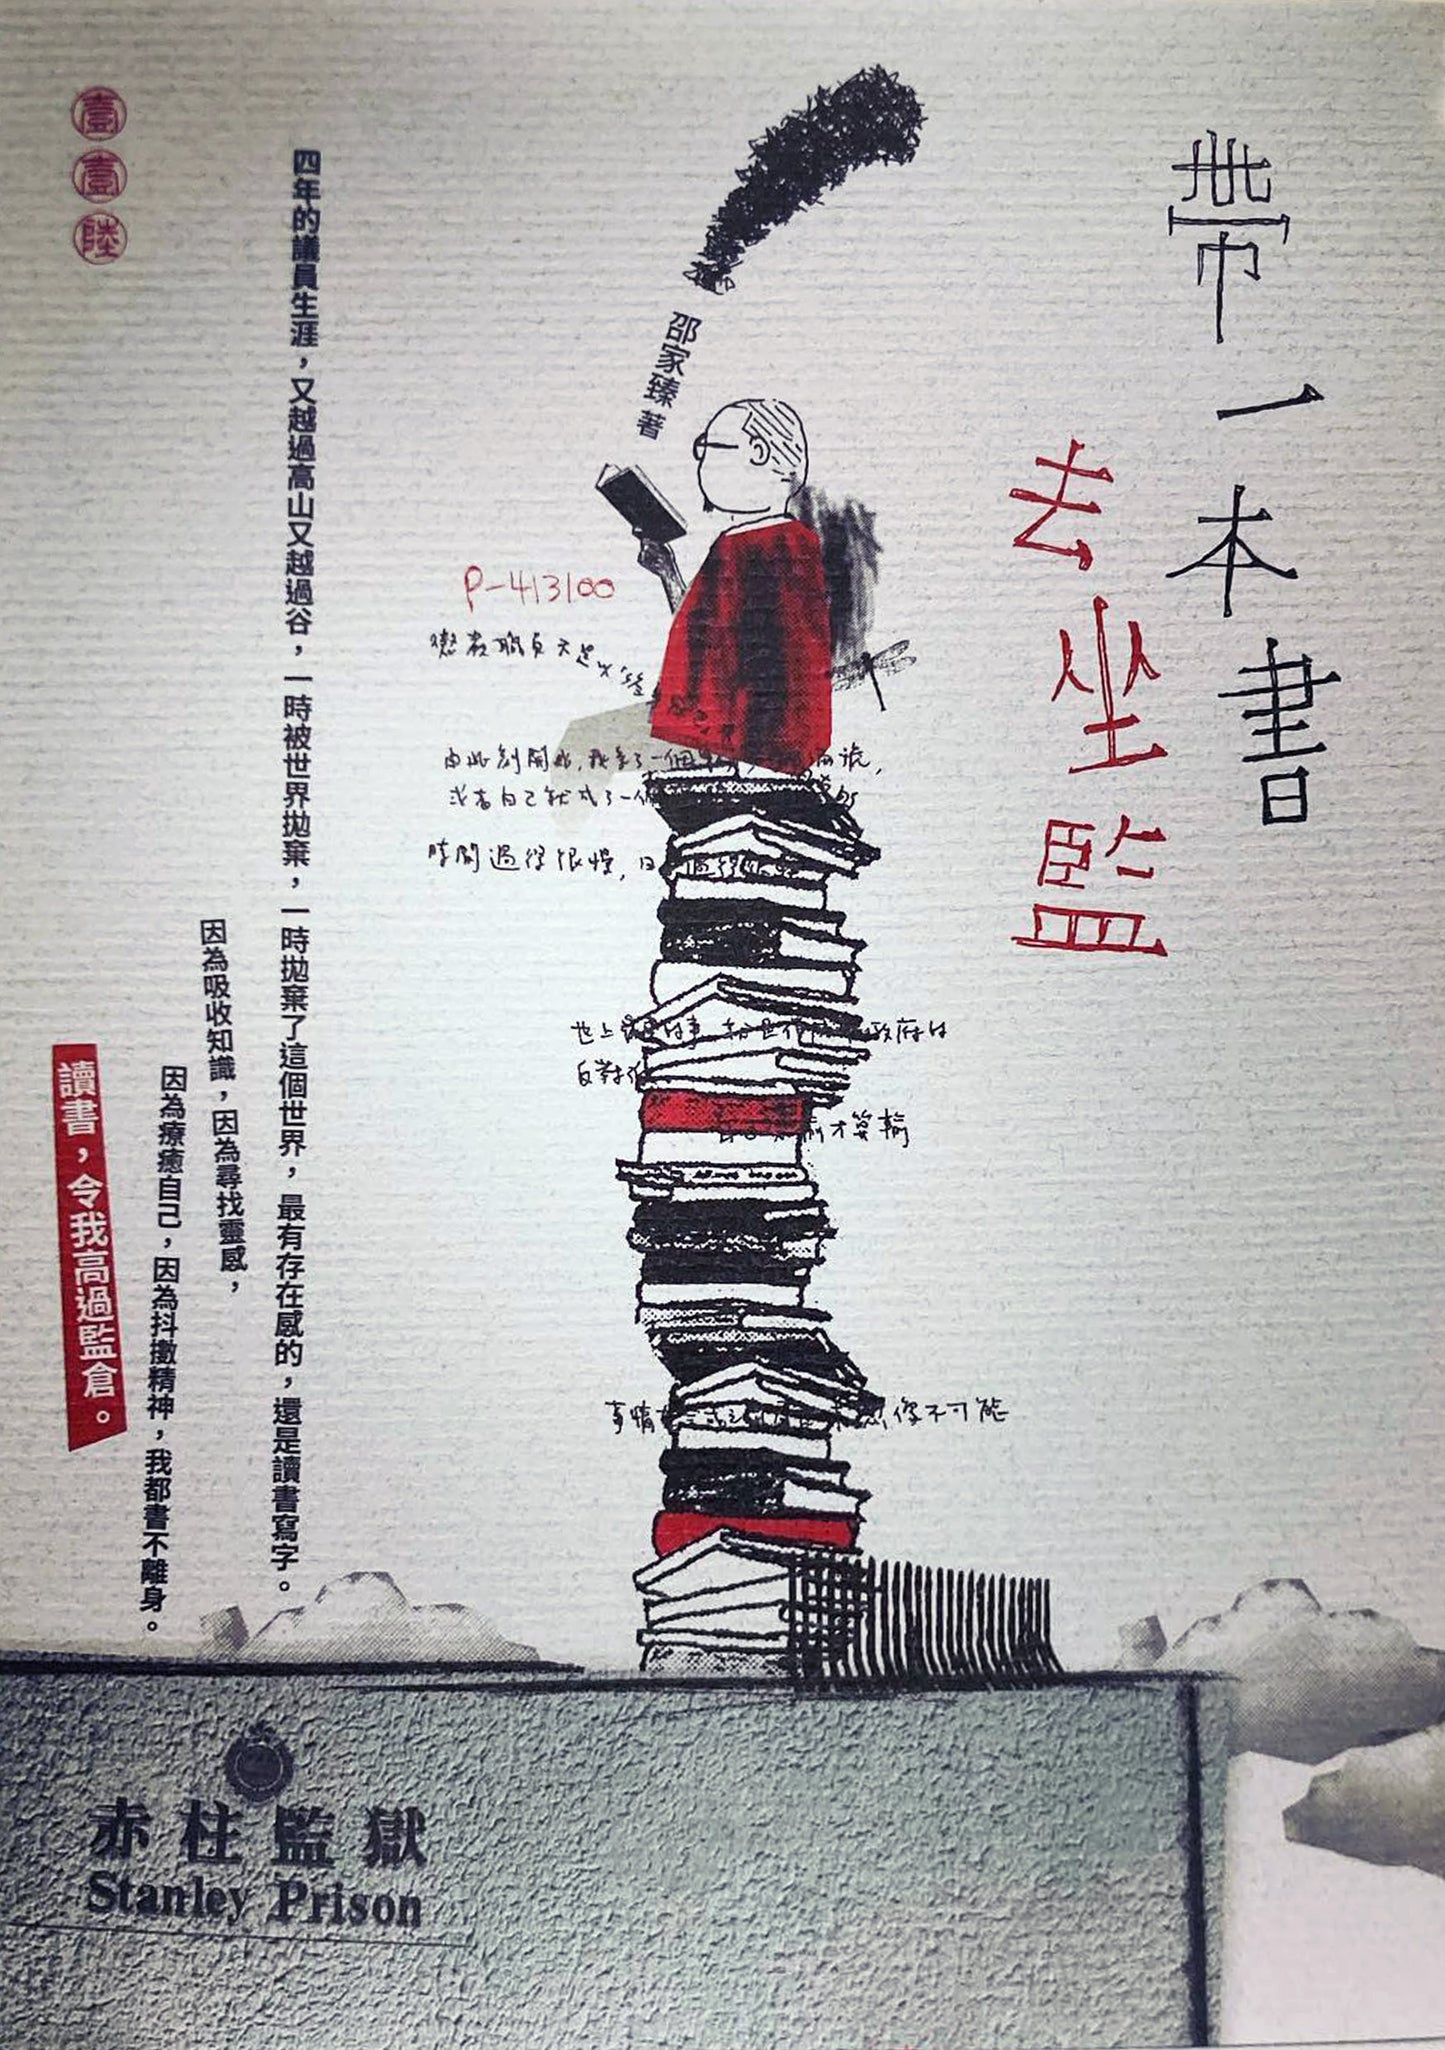 帶一本書
去坐監
邵家臻 著
P-413100
懲教職員天是
由此刻開始，我多了一個
或者自己就成了一個
時間過得很慢，日
世上
政府的
反對
才算輸
事情
想像不可能
四年的議員生涯，又越過高山又越過谷，一時被世界拋棄，一時拋棄了這個世界，最有存在感的，還是讀書寫字。
因為吸收知識，因為尋找靈感，
因為療癒自己，因為抖擻精神，我都書不離身。
讀書，令我高過監倉。
壹壹陸
赤柱監獄
Stanley Prison